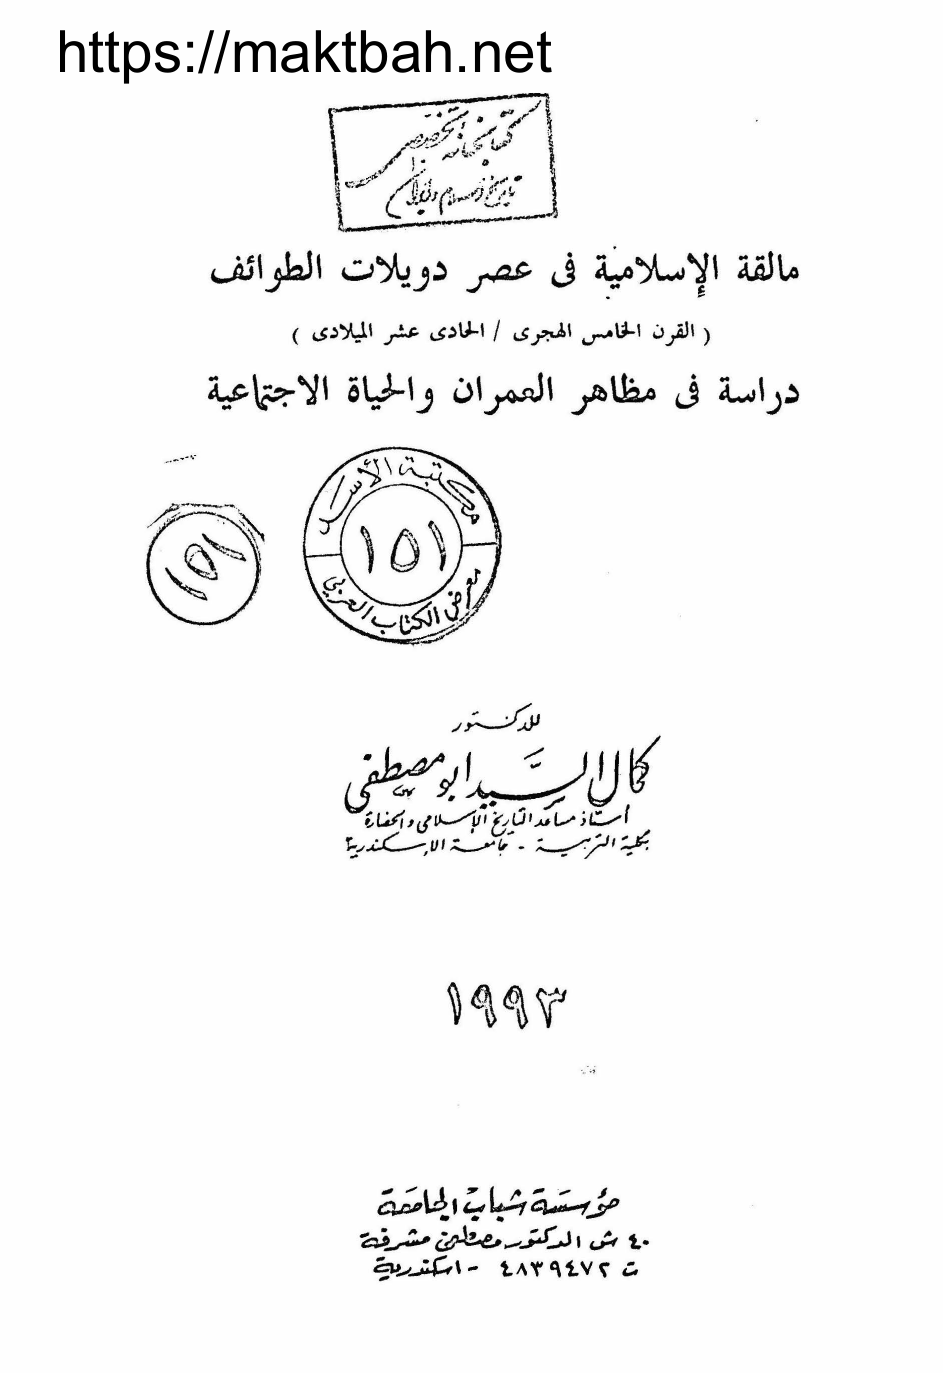 https://maktbah.net
كتابخانه تخصصى
تاريخ اسلام و ايران
مالقة الإسلامية فى عصر دويلات الطوائف
( القرن الخامس الهجرى / الحادى عشر الميلادى )
دراسة فى مظاهر العمران والحياة الاجتماعية
مكتبة الأسد
١٥١
معرض الكتاب العربي
١٥١
للدكتور
كمال السيد ابو مصطفى
أستاذ مساعد التاريخ الإسلامى والحضارة
بكلية التربية - جامعة الإسكندرية
١٩٩٣
مؤسسة شباب الجامعة
٤٠ ش الدكتور مصطفى مشرفة
ت ٤٨٣٩٤٧٢ - اسكندرية